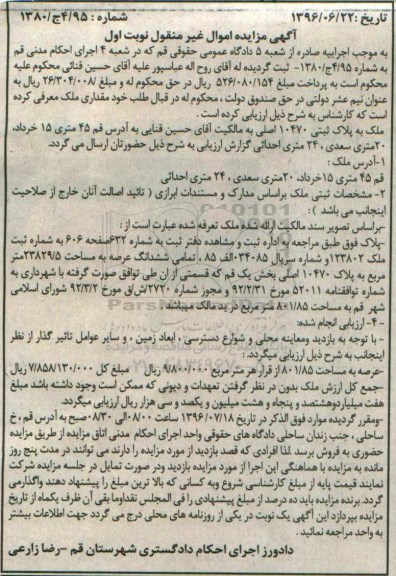 تاریخ: ۱۳۹۶/۰۶/۲۲ شماره: ۴/۹۵ج/۱۳۸۰
آگهی مزایده اموال غیر منقول نوبت اول
به موجب اجراییه صادره از شعبه ۵ دادگاه عمومی حقوقی قم که در شعبه ۴ اجرای احکام مدنی قم
به شماره ۴/۹۵ج/۱۳۸۰- ثبت گردیده له آقای روح اله عباسپور علیه آقای حسین قنائی محکوم علیه
محکوم است به پرداخت مبلغ ۵۲۶/۰۸۰/۱۵۴ ریال در حق محکوم له و مبلغ ۲۶/۳۰۴/۰۰۸ ریال به
عنوان نیم عشر دولتی در حق صندوق دولت، محکوم له در قبال طلب خود مقداری ملک معرفی کرده
است که کارشناس به شرح ذیل ارزیابی کرده است.
ملک به پلاک ثبتی ۱۰۴۷۰ اصلی به مالکیت آقای حسین قنایی به آدرس قم ۴۵ متری ۱۵ خرداد،
۲۰متری سعدی، ۲۴ متری احداثی گزارش ارزیابی به شرح ذیل حضورتان ارسال می گردد.
۱-آدرس ملک:
قم ۴۵ متری ۱۵خرداد، ۲۰متری سعدی، ۲۴ متری احداثی
۲- مشخصات ثبتی ملک براساس مدارک و مستندات ابرازی ( تائید اصالت آنان خارج از صلاحیت
اینجانب می باشد ):
-براساس تصویر سند مالکیت ارائه شده ملک تعرفه شده عبارت است از:
-پلاک فوق طبق مراجعه به اداره ثبت و مشاهده دفتر ثبت به شماره ۶۳۲صفحه ۶۰۶ به شماره ثبت
ملک ۱۲۳۸۰۲ و شماره سریال ۳۴۰۸۵-الف ۸۵، تمامی ششدانگ عرصه به مساحت ۲۳۸۲۹/۵متر
مربع به پلاک ۱۰۴۷۰ اصلی بخش یک قم که قسمتی از آن طی توافق صورت گرفته با شهرداری به
شماره توافقنامه ۵۲۰۱۱ مورخ ۹۲/۲/۳۱ و مجوز شماره ۲۷۲۰/ش/ق مورخ ۹۲/۳/۲ شورای اسلامی
شهر قم به مساحت ۸۰۱/۸۵ متر مربع در ید مالک میباشد.
-۴- ارزیابی انجام شده:
- با توجه به بازدید ومعاینه محلی و شوارع دسترسی، ابعاد زمین، و سایر عوامل تاثیر گذار از نظر
اینجانب به شرح ذیل ارزیابی میگردد:
-عرصه به مساحت ۸۰۱/۸۵ از قرار هر متر مربع ۹/۸۰۰/۰۰۰ ریال مبلغ کل ۷/۸۵۸/۱۳۰/۰۰۰ ریال
-جمع کل ارزش ملک بدون در نظر گرفتن تعهدات و دیونی که ممکن است وجود داشته باشد مبلغ
هفت میلیاردوهشتصد و پنجاه و هشت میلیون و یکصد و سی هزار ریال ارزیابی میگردد.
-ومقرر گردیده موارد فوق الذکر در تاریخ ۱۳۹۶/۰۷/۱۸ ساعت ۰۸/۰۰ الی ۰۸/۳۰صبح به آدرس قم، خ
ساحلی، جنب زندان ساحلی دادگاه های حقوقی واحد اجرای احکام مدنی اتاق مزایده از طریق مزایده
حضوری به فروش برسد لذا افرادی که قصد بازدید از مورد مزایده را دارند می توانند در مدت پنج روز
مانده به مزایده با هماهنگی این اجرا از مورد مزایده بازدید ودر صورت تمایل در جلسه مزایده شرکت
نمایند قیمت پایه از مبلغ کارشناسی شروع وبه کسانی که بالا ترین مبلغ را پیشنهاد دهند واگذارمی
گردد. برنده مزایده باید ده درصد از مبلغ پیشنهادی را فی المجلس نقداوما بقی آن ظرف یکماه از تاریخ
مزایده بپردازد این آگهی یک نوبت در یکی از روزنامه های محلی درج می گردد جهت اطلاعات بیشتر
به واحد مراجعه نمائید.
دادورز اجرای احکام دادگستری شهرستان قم -رضا زارعی